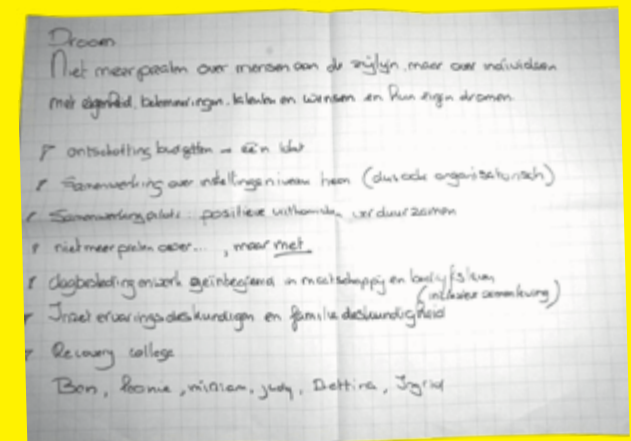 Droom
Niet meer praten over mensen aan de zijlijn, maar over individuen
met eigenheid, belemmeringen, talenten en wensen en hun eigen dromen.
ontschotting budgetten → één loket
Samenwerking over instellingsniveau heen (dus ook organisatorisch)
Samenwerking positieve uitkomsten verduurzamen
niet meer praten over..., maar met
dagbesteding en werk geïntegreerd in maatschappij en bedrijfsleven
(inclusieve samenleving)
Inzet ervaringsdeskundigen en familiedeskundigheid
Recovery college
Ben, Leonie, Miriam, Judy, Bettina, Ingrid